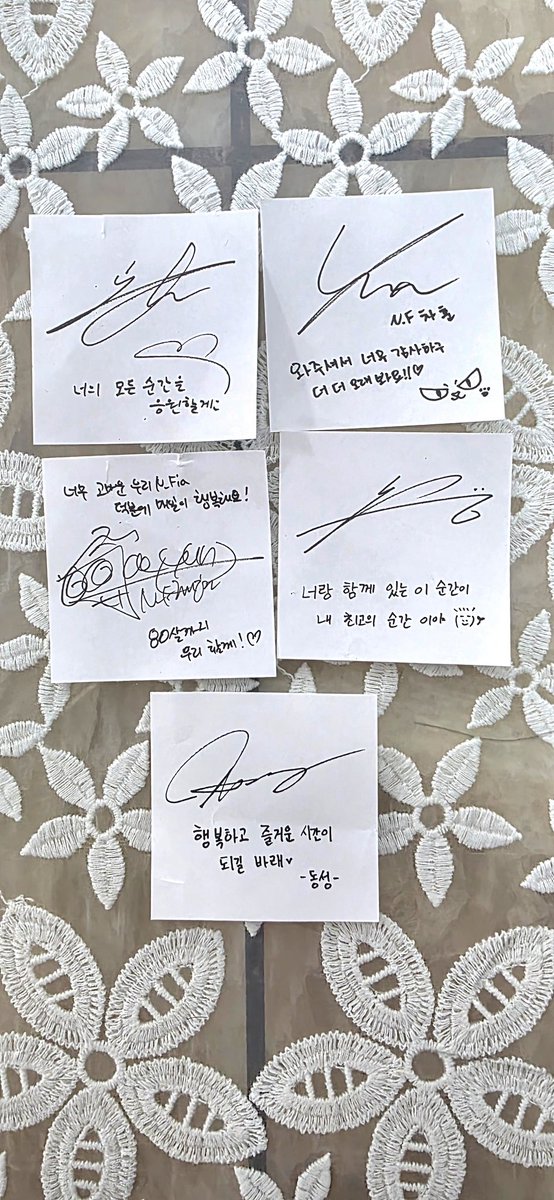 너의 모든 순간을
응원할게
N.F 차훈
와주셔서 너무 감사하구
더 더 오래 봐요!!♡
너무 고마운 우리 N.Fia
덕분에 매일이 행복해요!
80살까지
우리 함께!♡
너랑 함께 있는 이 순간이
내 최고의 순간 이야
행복하고 즐거운 시간이
되길 바래♥
-동성-